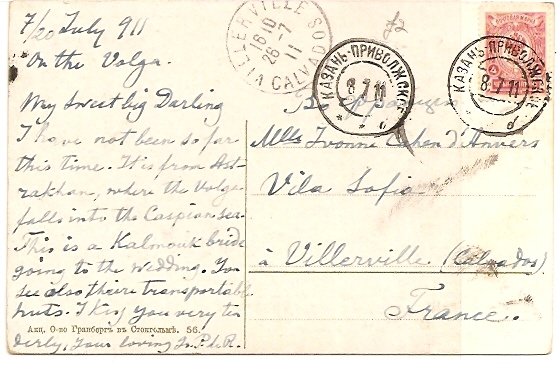 7/20 July 911
On the Volga.
My sweet big Darling
I have not been so far
this time. It is from Ast-
rakhan, where the Volga
falls into the Caspian sea.
This is a Kalmouk bride
going to the wedding. You
see also their transportable
huts. I kiss you very ten
derly, Your loving
Акц. О-во Гранбергъ въ Стокгольмѣ. 56.
VILLERVILLE CALVADOS
18 10
26 -7
11
КАЗАНЬ-ПРИВОЛЖСК
8 7 11
КАЗАНЬ-ПРИВОЛЖСК
8 7 11
Mlle Yvonne Cahen d'Anvers
Vila Sofia
à Villerville (Calvados)
France.